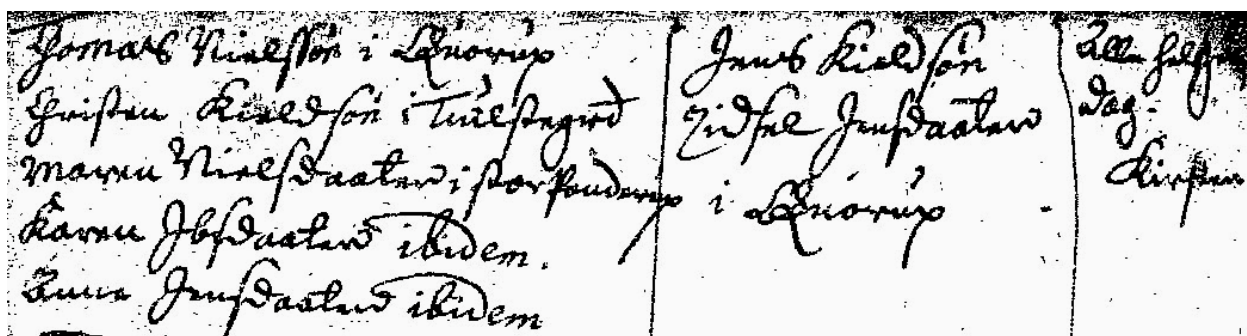 Thomas Nielssøn i Qvorup
Christen Kieldsøn i
Maren Nielsdaater i stor Ponderup
Karen Ibsdaater ibidem.
Anne Jensdaater ibidem
Jens Kieldsøn
Zidsel Jensdaater
i Qvorup
Alle helgen
dag.
Kirsten